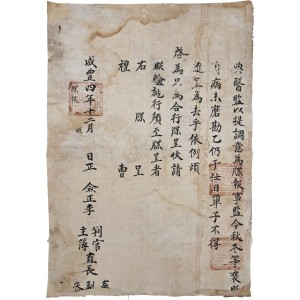 典醫監以提調意爲牒報事監今秋冬等褒貶
病未磨勘乙仍于仕日單子不得
進上爲去乎依例頉
啓爲只爲合行牒呈伏請
照驗施行須至牒呈者
右牒呈
禮曹
咸豊四年十二月 日正 僉正李
判官
主簿 直長